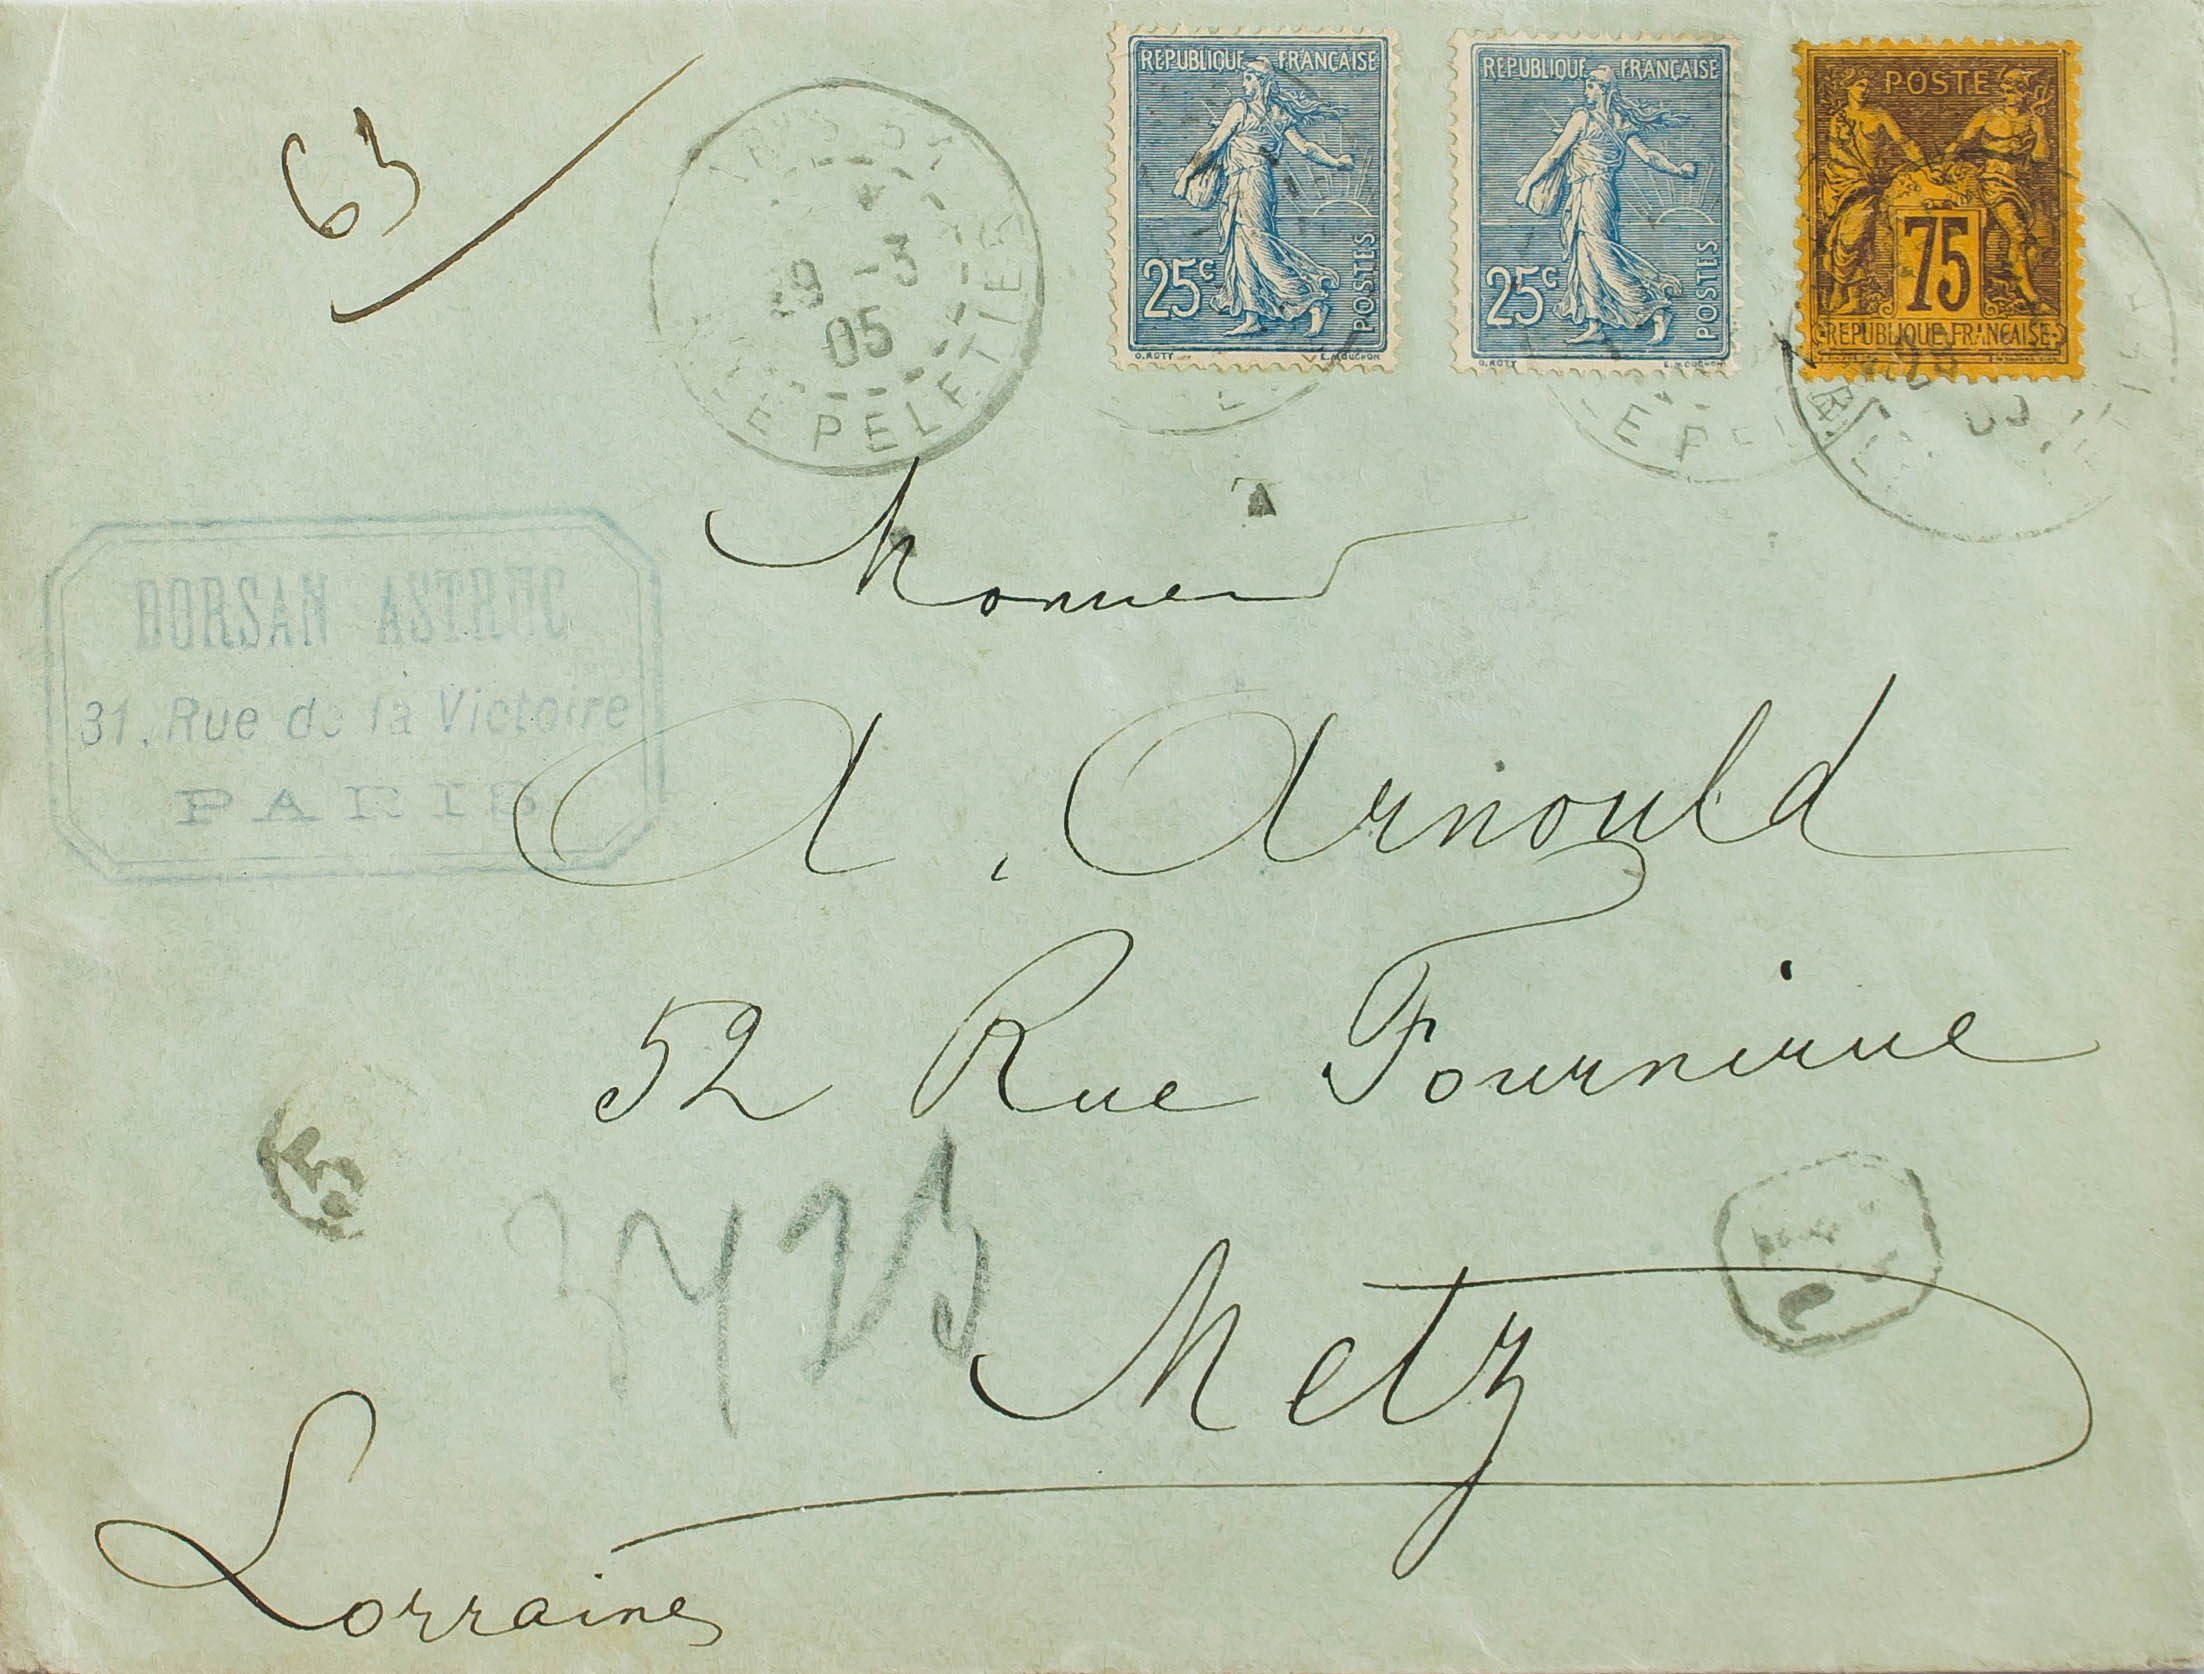 63
REPUBLIQUE FRANÇAISE
25c
POSTES
O. ROTY E. MOUCHON
REPUBLIQUE FRANÇAISE
25c
POSTES
O. ROTY E. MOUCHON
POSTE
75
REPUBLIQUE FRANÇAISE
29 -3
05
LE PELETIER
Monsieur
DORSAN ASTRUC
31, Rue de la Victoire
PARIS
A. Arnould
52 Rue Fournirue
Metz
Lorraine